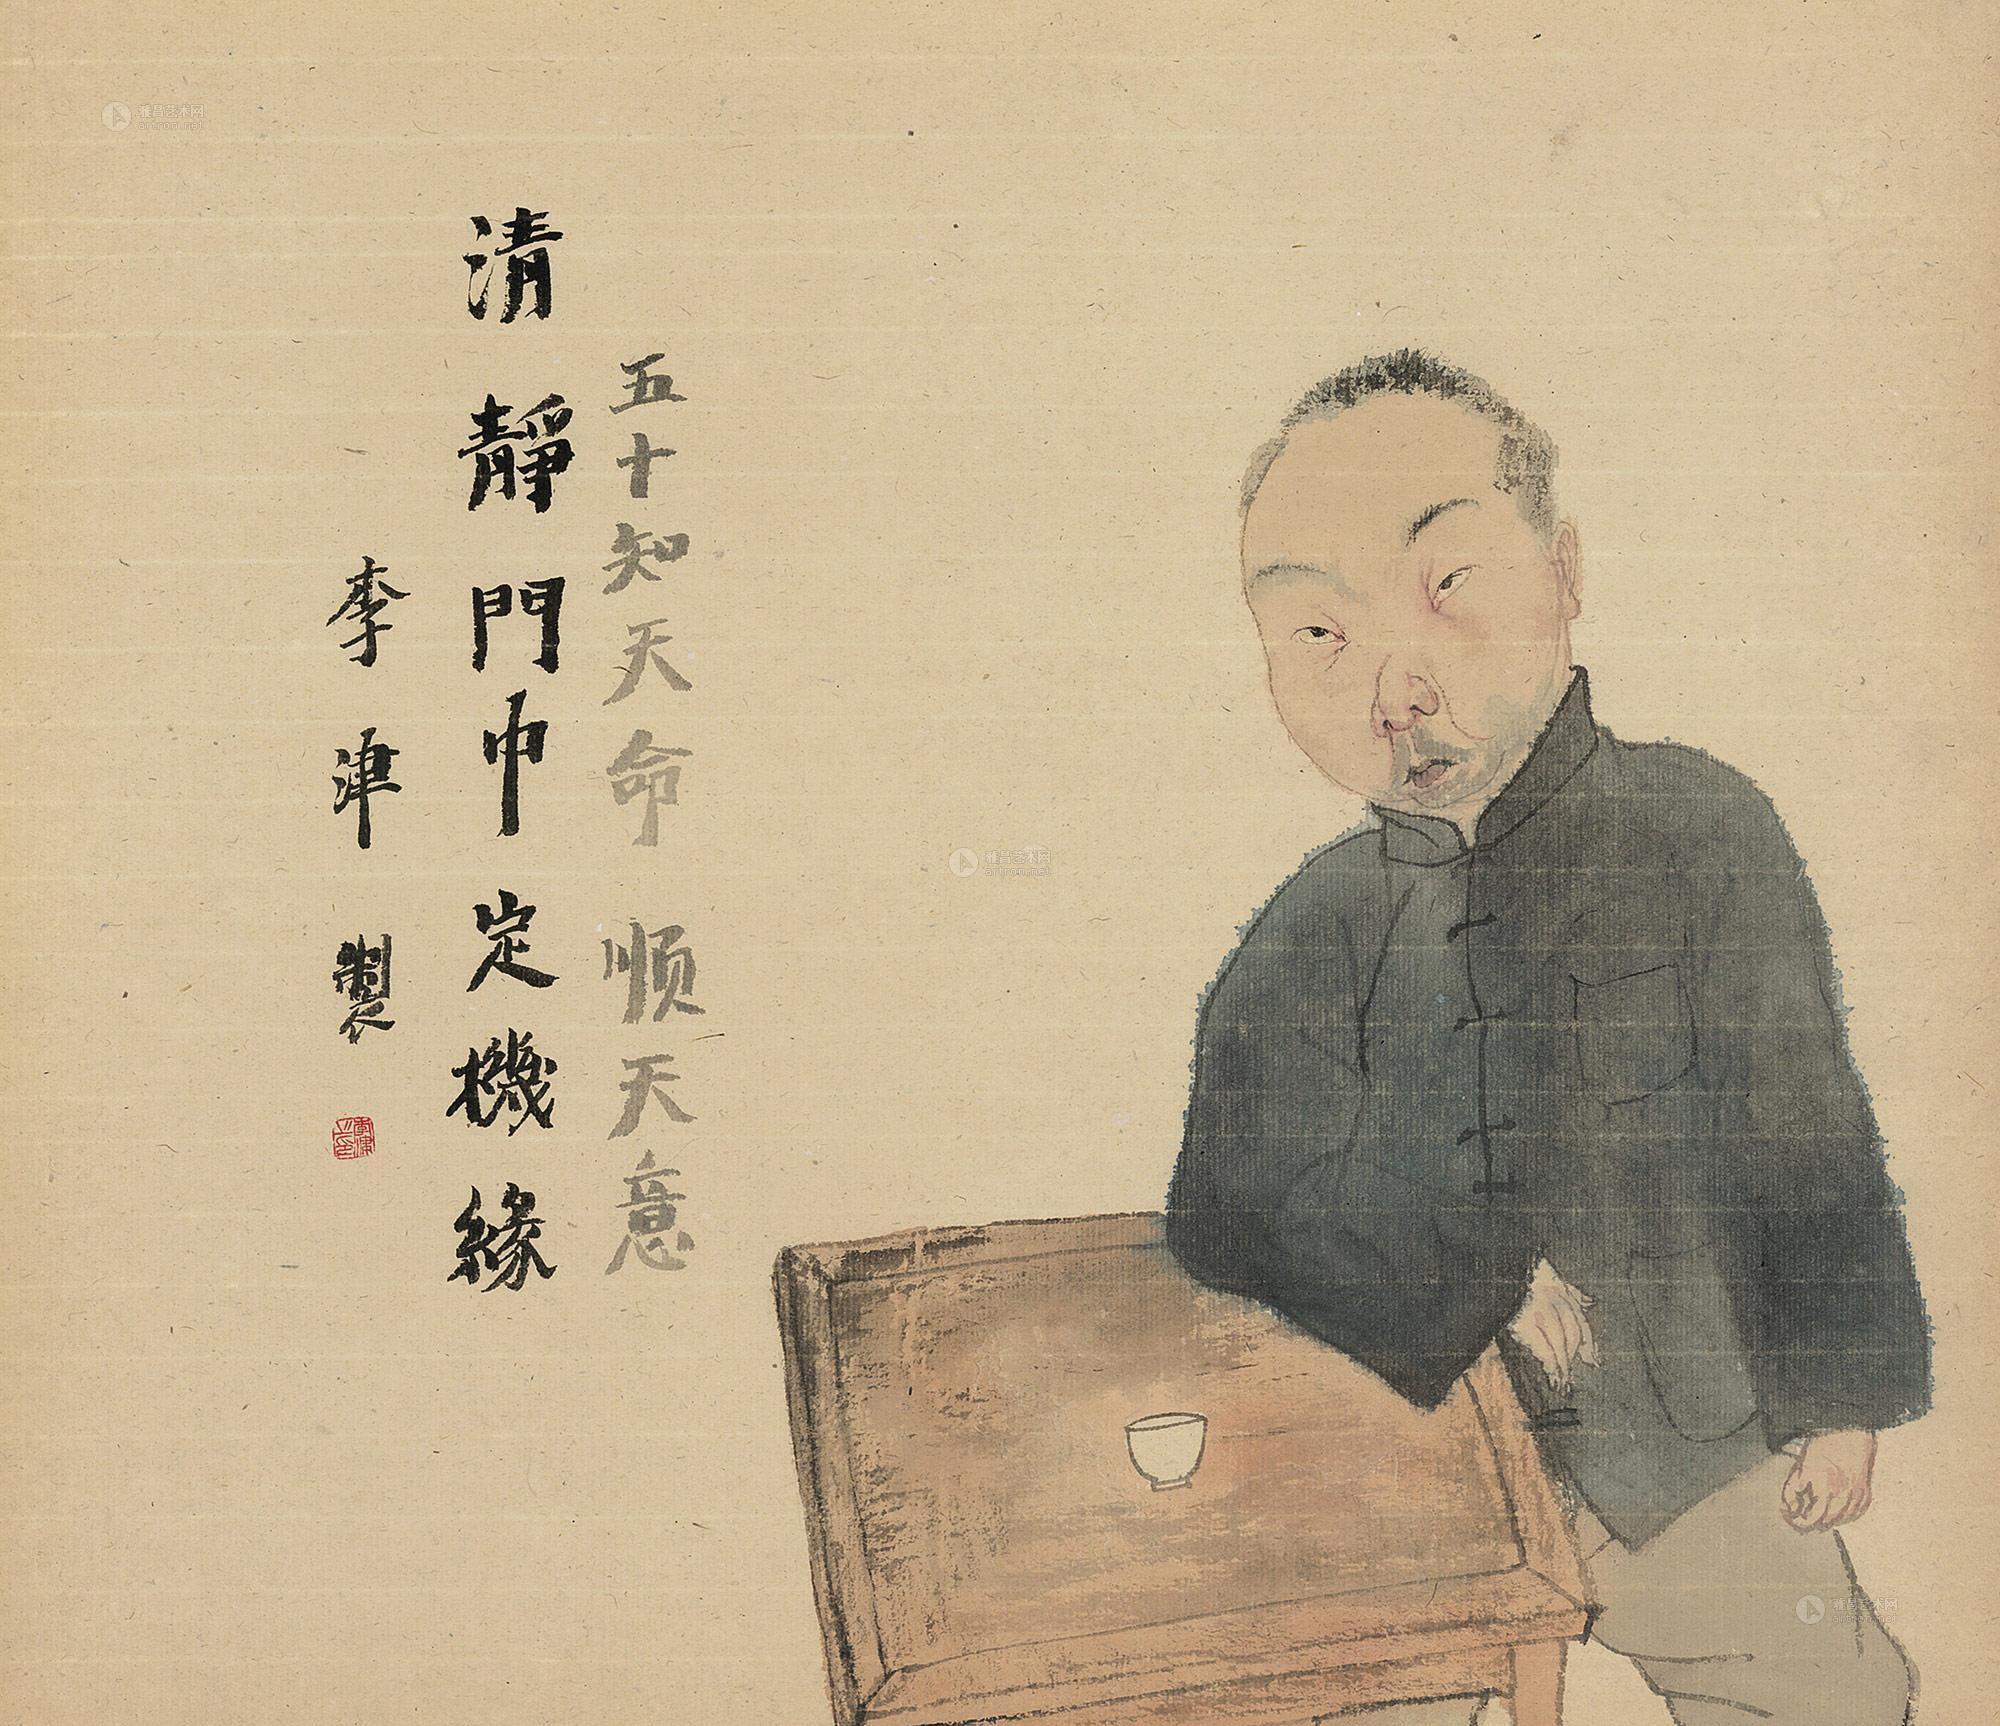 五十知天命 顺天意
清靜門巾定機緣
李津製
雅昌艺术网
artron.net
雅昌艺术网
artron.net
雅昌艺术网
artron.net